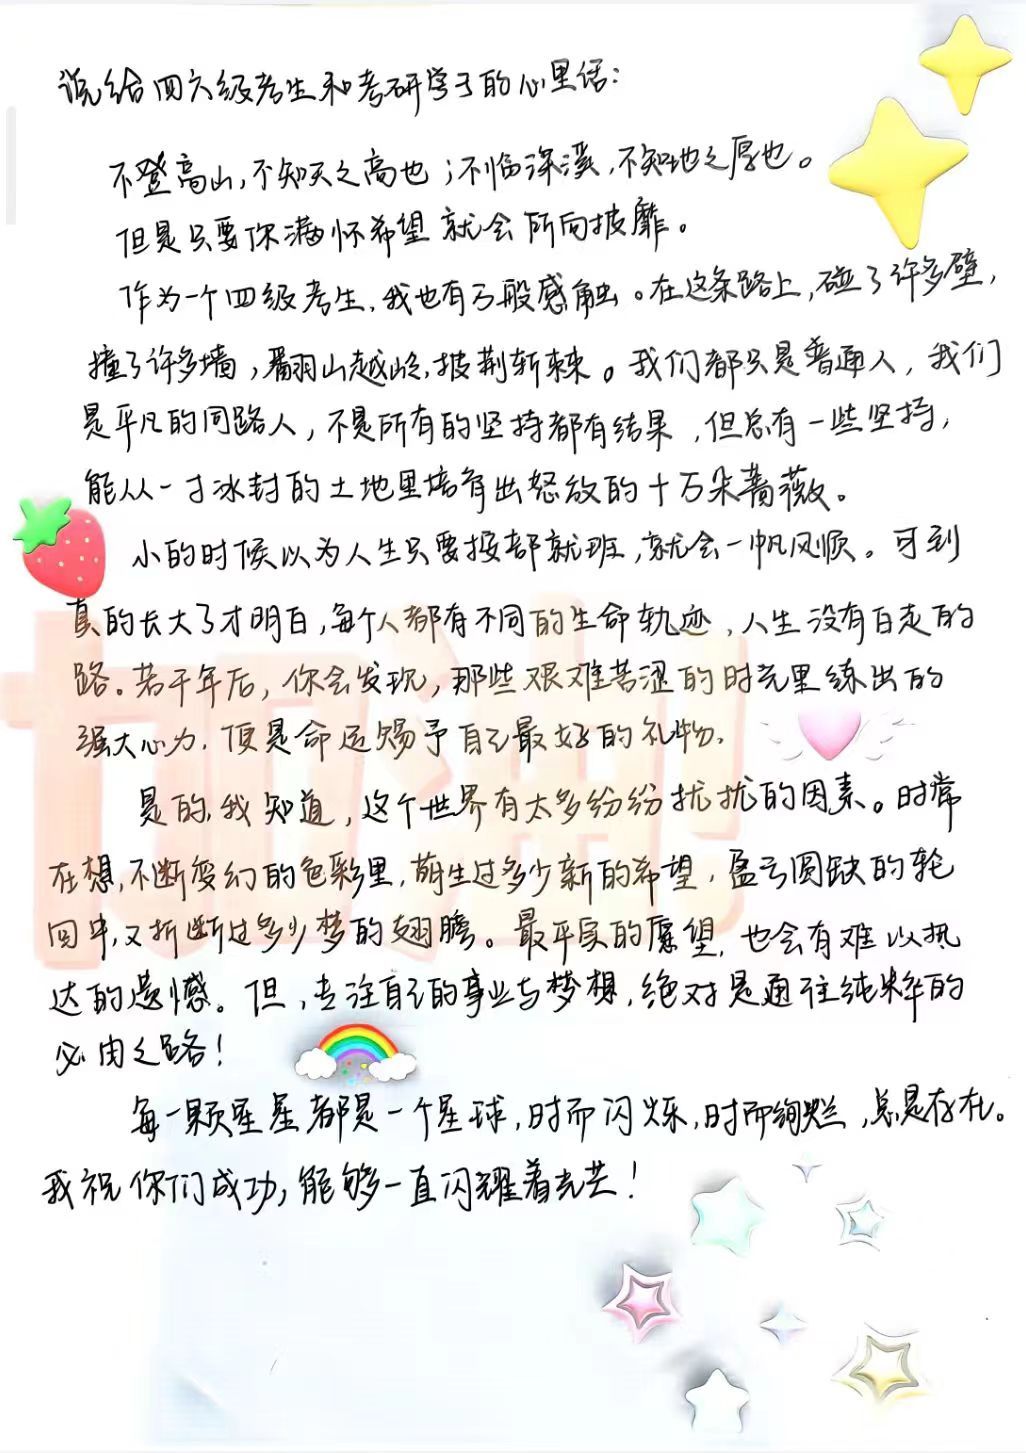 说给四六级考生和考研学子的心里话：
不登高山，不知天之高也；不临深溪，不知地之厚也。
但是只要你满怀希望就会所向披靡。
作为一个四级考生，我也有万般感触。在这条路上，碰了许多壁，
撞了许多墙，翻山越岭，披荆斩棘。我们都只是普通人，我们
是平凡的同路人，不是所有的坚持都有结果，但总有一些坚持，
能从一寸冰封的土地里培育出怒放的十万朵蔷薇。
小的时候以为人生只要按部就班，就会一帆风顺。可到
真的长大了才明白，每个人都有不同的生命轨迹，人生没有白走的
路。若干年后，你会发现，那些艰难苦涩的时光里练出的
强大心力，便是命运赐予自己最好的礼物。
是的，我知道，这个世界有太多纷纷扰扰的因素。时常
在想，不断变幻的色彩里，萌生过多少新的希望，盈亏圆缺的轮
回中，又折断过多少梦的翅膀。最平实的愿望，也会有难以抵
达的遗憾。但，专注自己的事业与梦想，绝对是通往纯粹的
必由之路！
每一颗星星都是一个星球，时而闪烁，时而绚烂，总是存在。
我祝你们成功，能够一直闪耀着光芒！
加油！